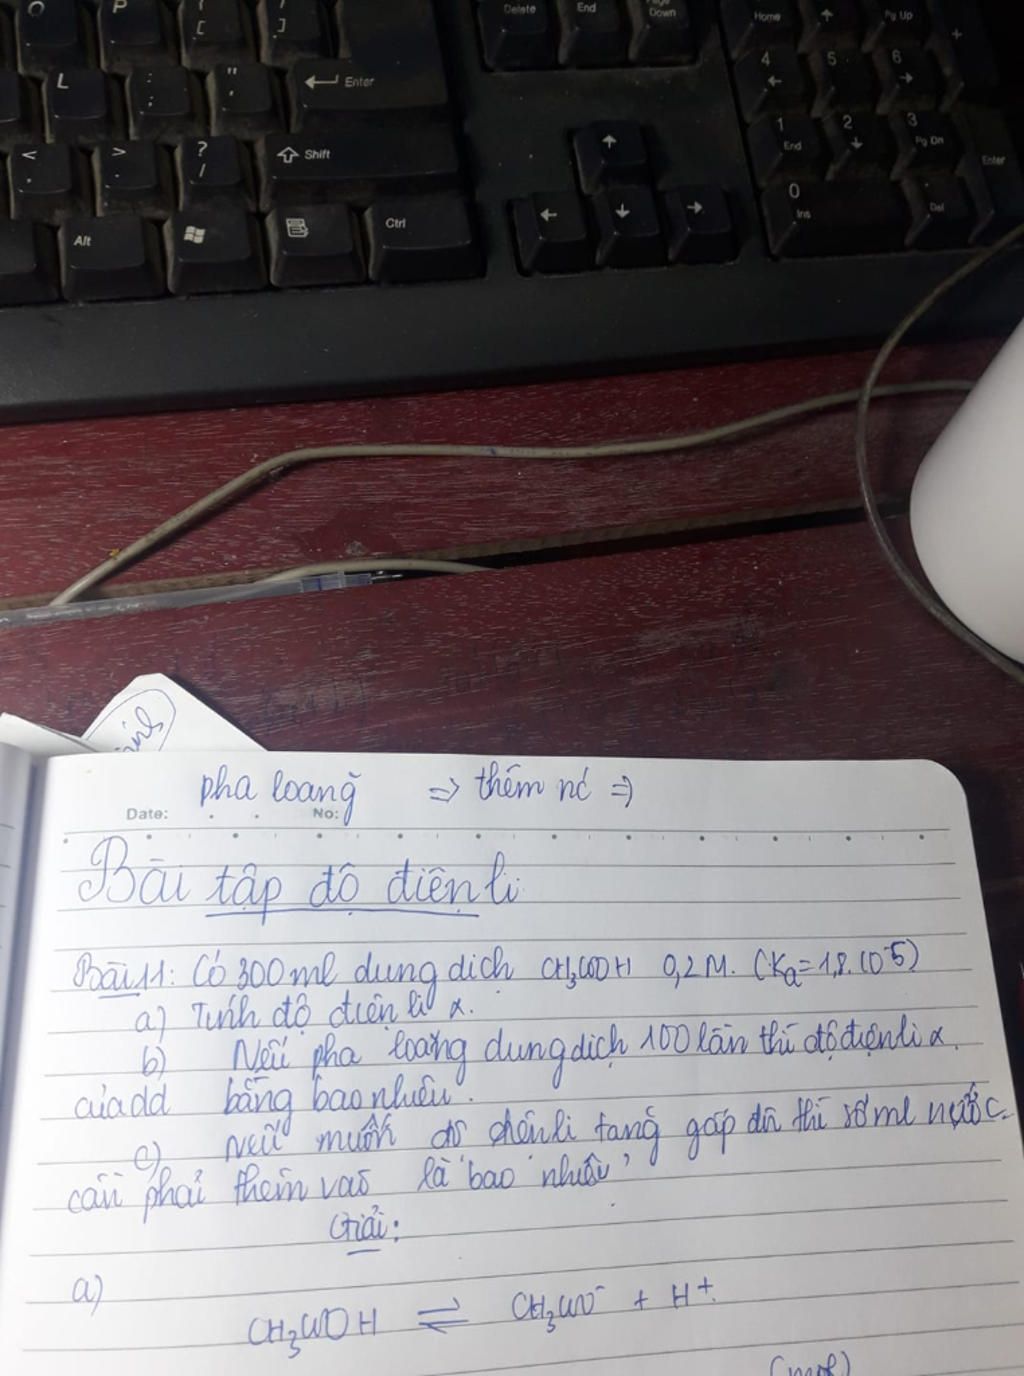 O P { [ } ]
Delete End Page Down
Home ↑ Pg Up +
L : ; " ' Enter
4 ← 5 6 →
< , > . ? / Shift ↑
1 End 2 ↓ 3 Pg Dn Enter
Alt Ctrl ← ↓ →
0 Ins Del
pha loãng => thêm nć =>
Date: No:
Bài tập độ điện li
Bài 11: Có 300ml dung dịch CH3COOH 0,2M. (Ka=1,8.10-5)
a) Tính độ điện li α.
b) Nếu pha loãng dung dịch 100 lần thì độ điện li α
của dd bằng bao nhiêu.
c) Nếu muốn độ điện li tăng gấp đôi thì số ml nước
cần phải thêm vào là bao nhiêu?
Giải:
a)
CH3COOH ⇌ CH3COO- + H+.
(mol)